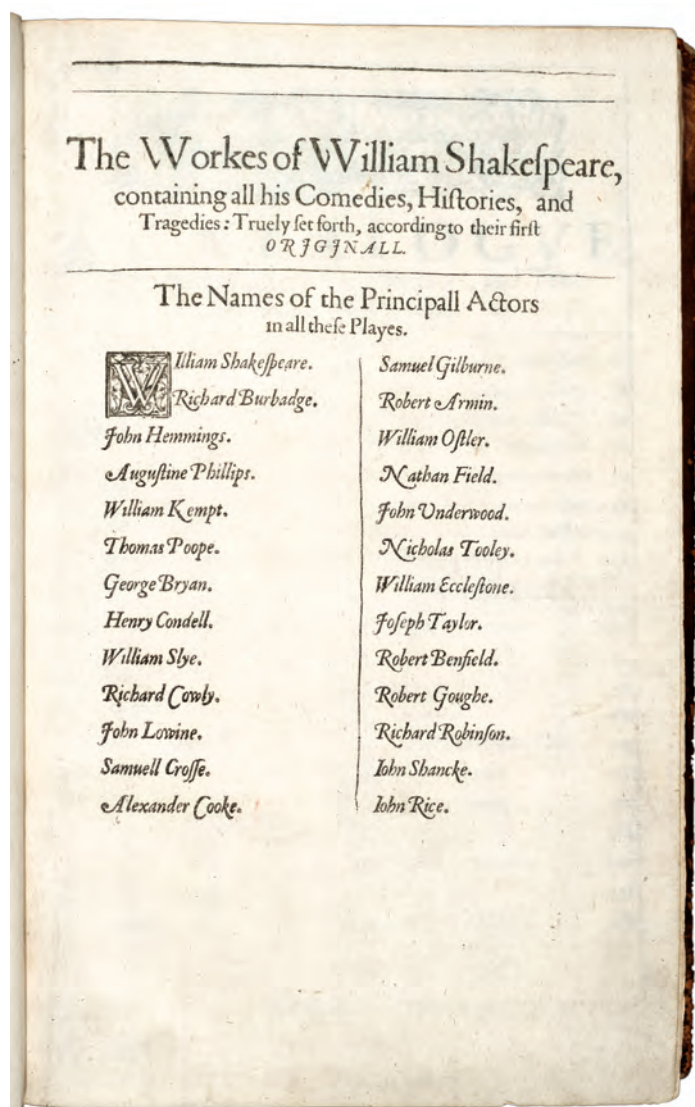 The Workes of William Shakeſpeare,
containing all his Comedies, Hiſtories, and
Tragedies: Truely ſet forth, according to their firſt
ORIGINALL.
The Names of the Principall Actors
in all theſe Playes.
William Shakeſpeare.
Richard Burbadge.
John Hemmings.
Auguſtine Phillips.
William Kempt.
Thomas Poope.
George Bryan.
Henry Condell.
William Slye.
Richard Cowly.
John Lowine.
Samuell Croſſe.
Alexander Cooke.
Samuel Gilburne.
Robert Armin.
William Oſtler.
Nathan Field.
John Underwood.
Nicholas Tooley.
William Eccleſtone.
Joſeph Taylor.
Robert Benfield.
Robert Goughe.
Richard Robinſon.
Iohn Shancke.
Iohn Rice.